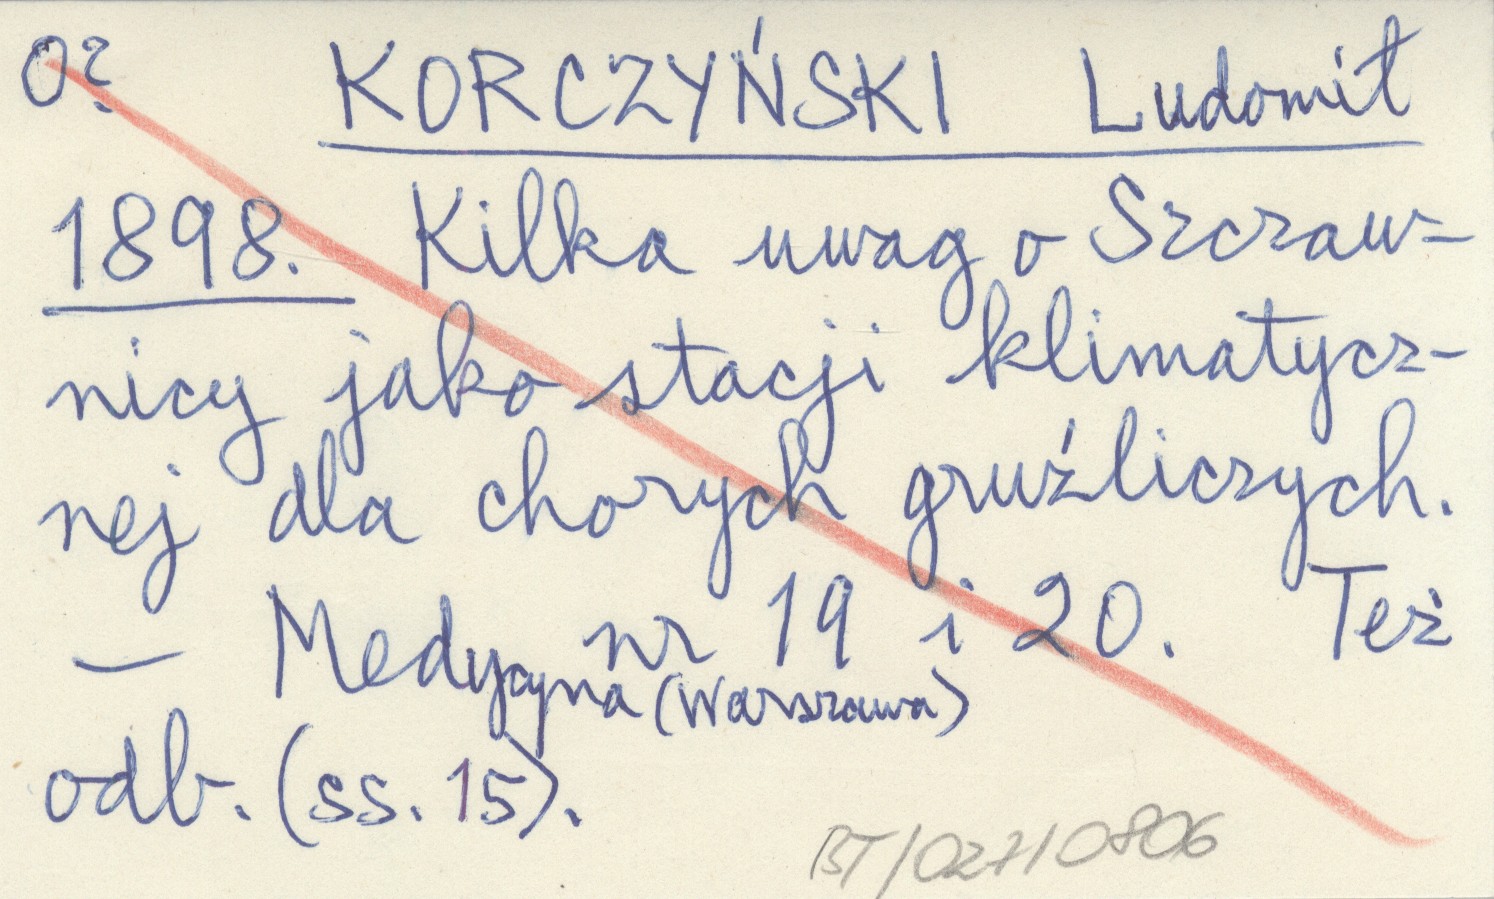 O? KORCZYŃSKI Ludomił
1898. Kilka uwag o Szczaw-
nicy jako stacji klimatycz-
nej dla chorych gruźliczych.
— Medycyna (Warszawa) nr 19 i 20. Też
odb. (ss. 15).
BT/027/0806